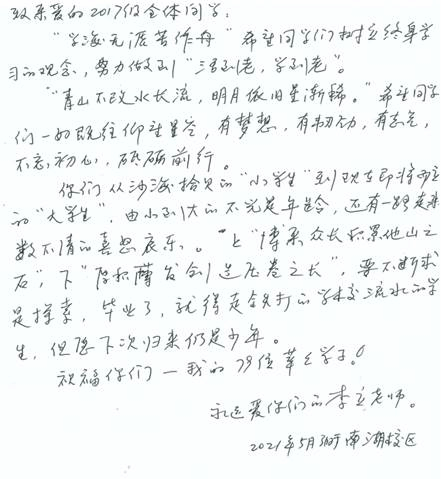 致亲爱的2017级全体同学:
“学海无涯苦作舟”希望同学们树立终身学
习的观念,努力做到“活到老,学到老”。
“青山不改水长流,明月依旧星渐稀。”希望同学
们一如既往仰望星空,有梦想,有韧劲,有志气,
不忘初心,砥砺前行。
你们从沙海拾贝的“小学生”到现在即将
的“大学生”,由小到大的不光是年龄,还有一路走来
数不清的喜怒哀乐。“上”博采众长积累他山之
石”;下“厚积薄发创造压卷之长”,要不断求
是探索,毕业了,就得是铁打的学校流水的学
生,但愿下次归来仍是少年。
祝福你们一我的79位莘莘学子。
永远爱你们的李立老师。
2021年5月 于南湖校区